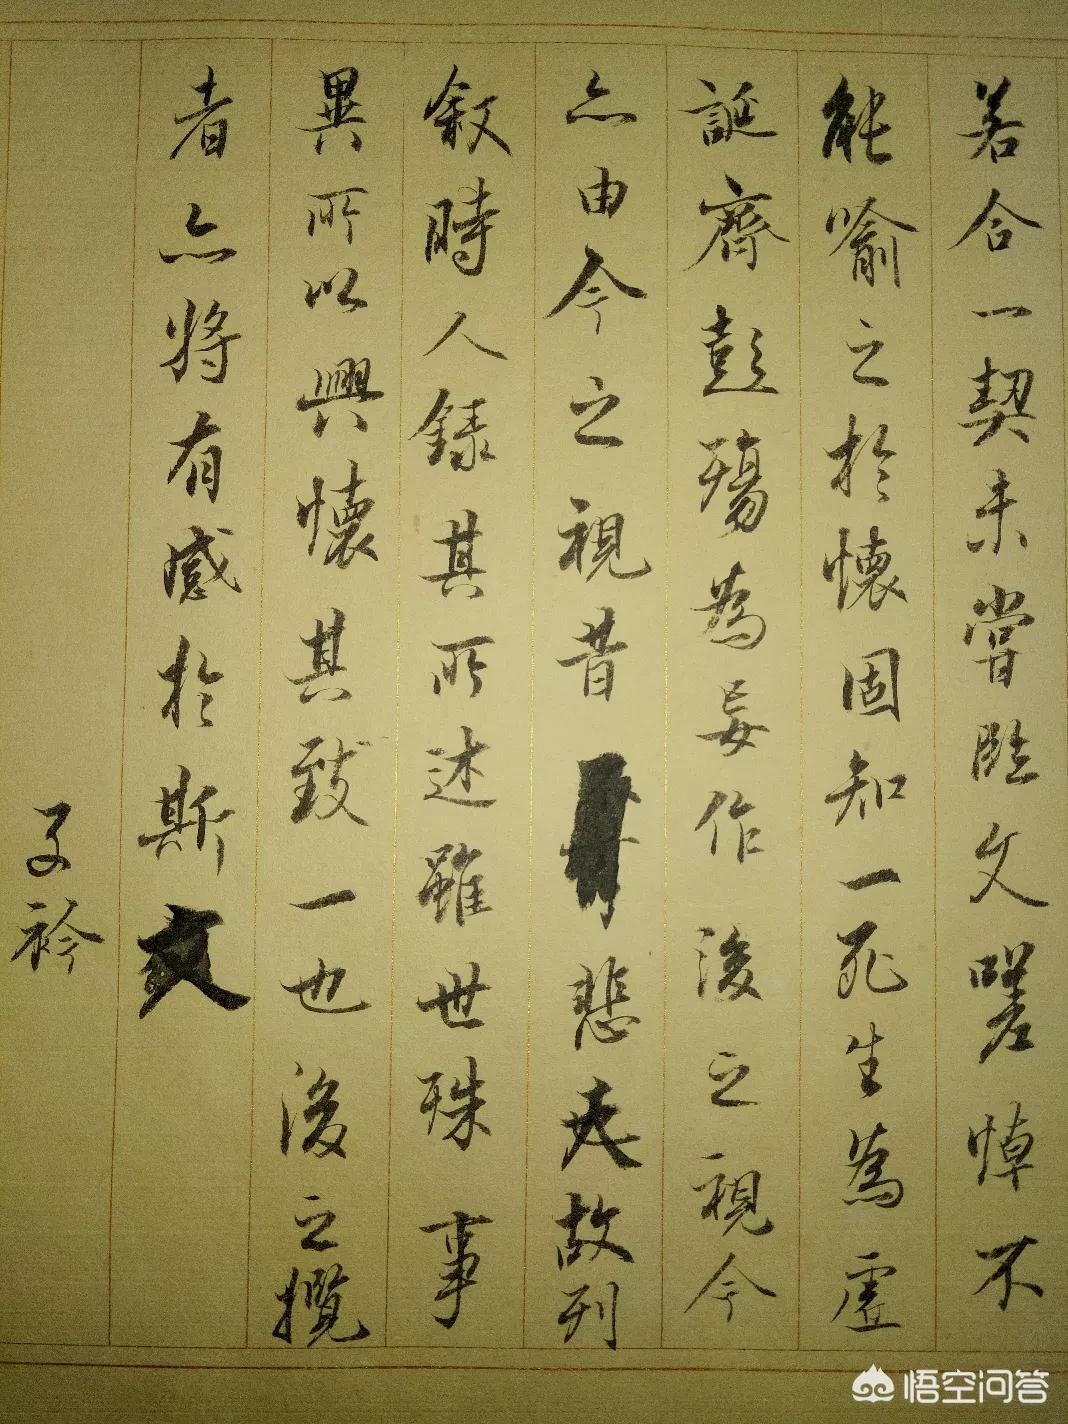 若合一契未嘗臨文嗟悼不
能喻之於懷固知一死生為虛
誕齊彭殤為妄作後之視今
亦由今之視昔悲夫故列
叙時人錄其所述雖世殊事
異所以興懷其致一也後之攬
者亦將有感於斯文
子衿
悟空问答